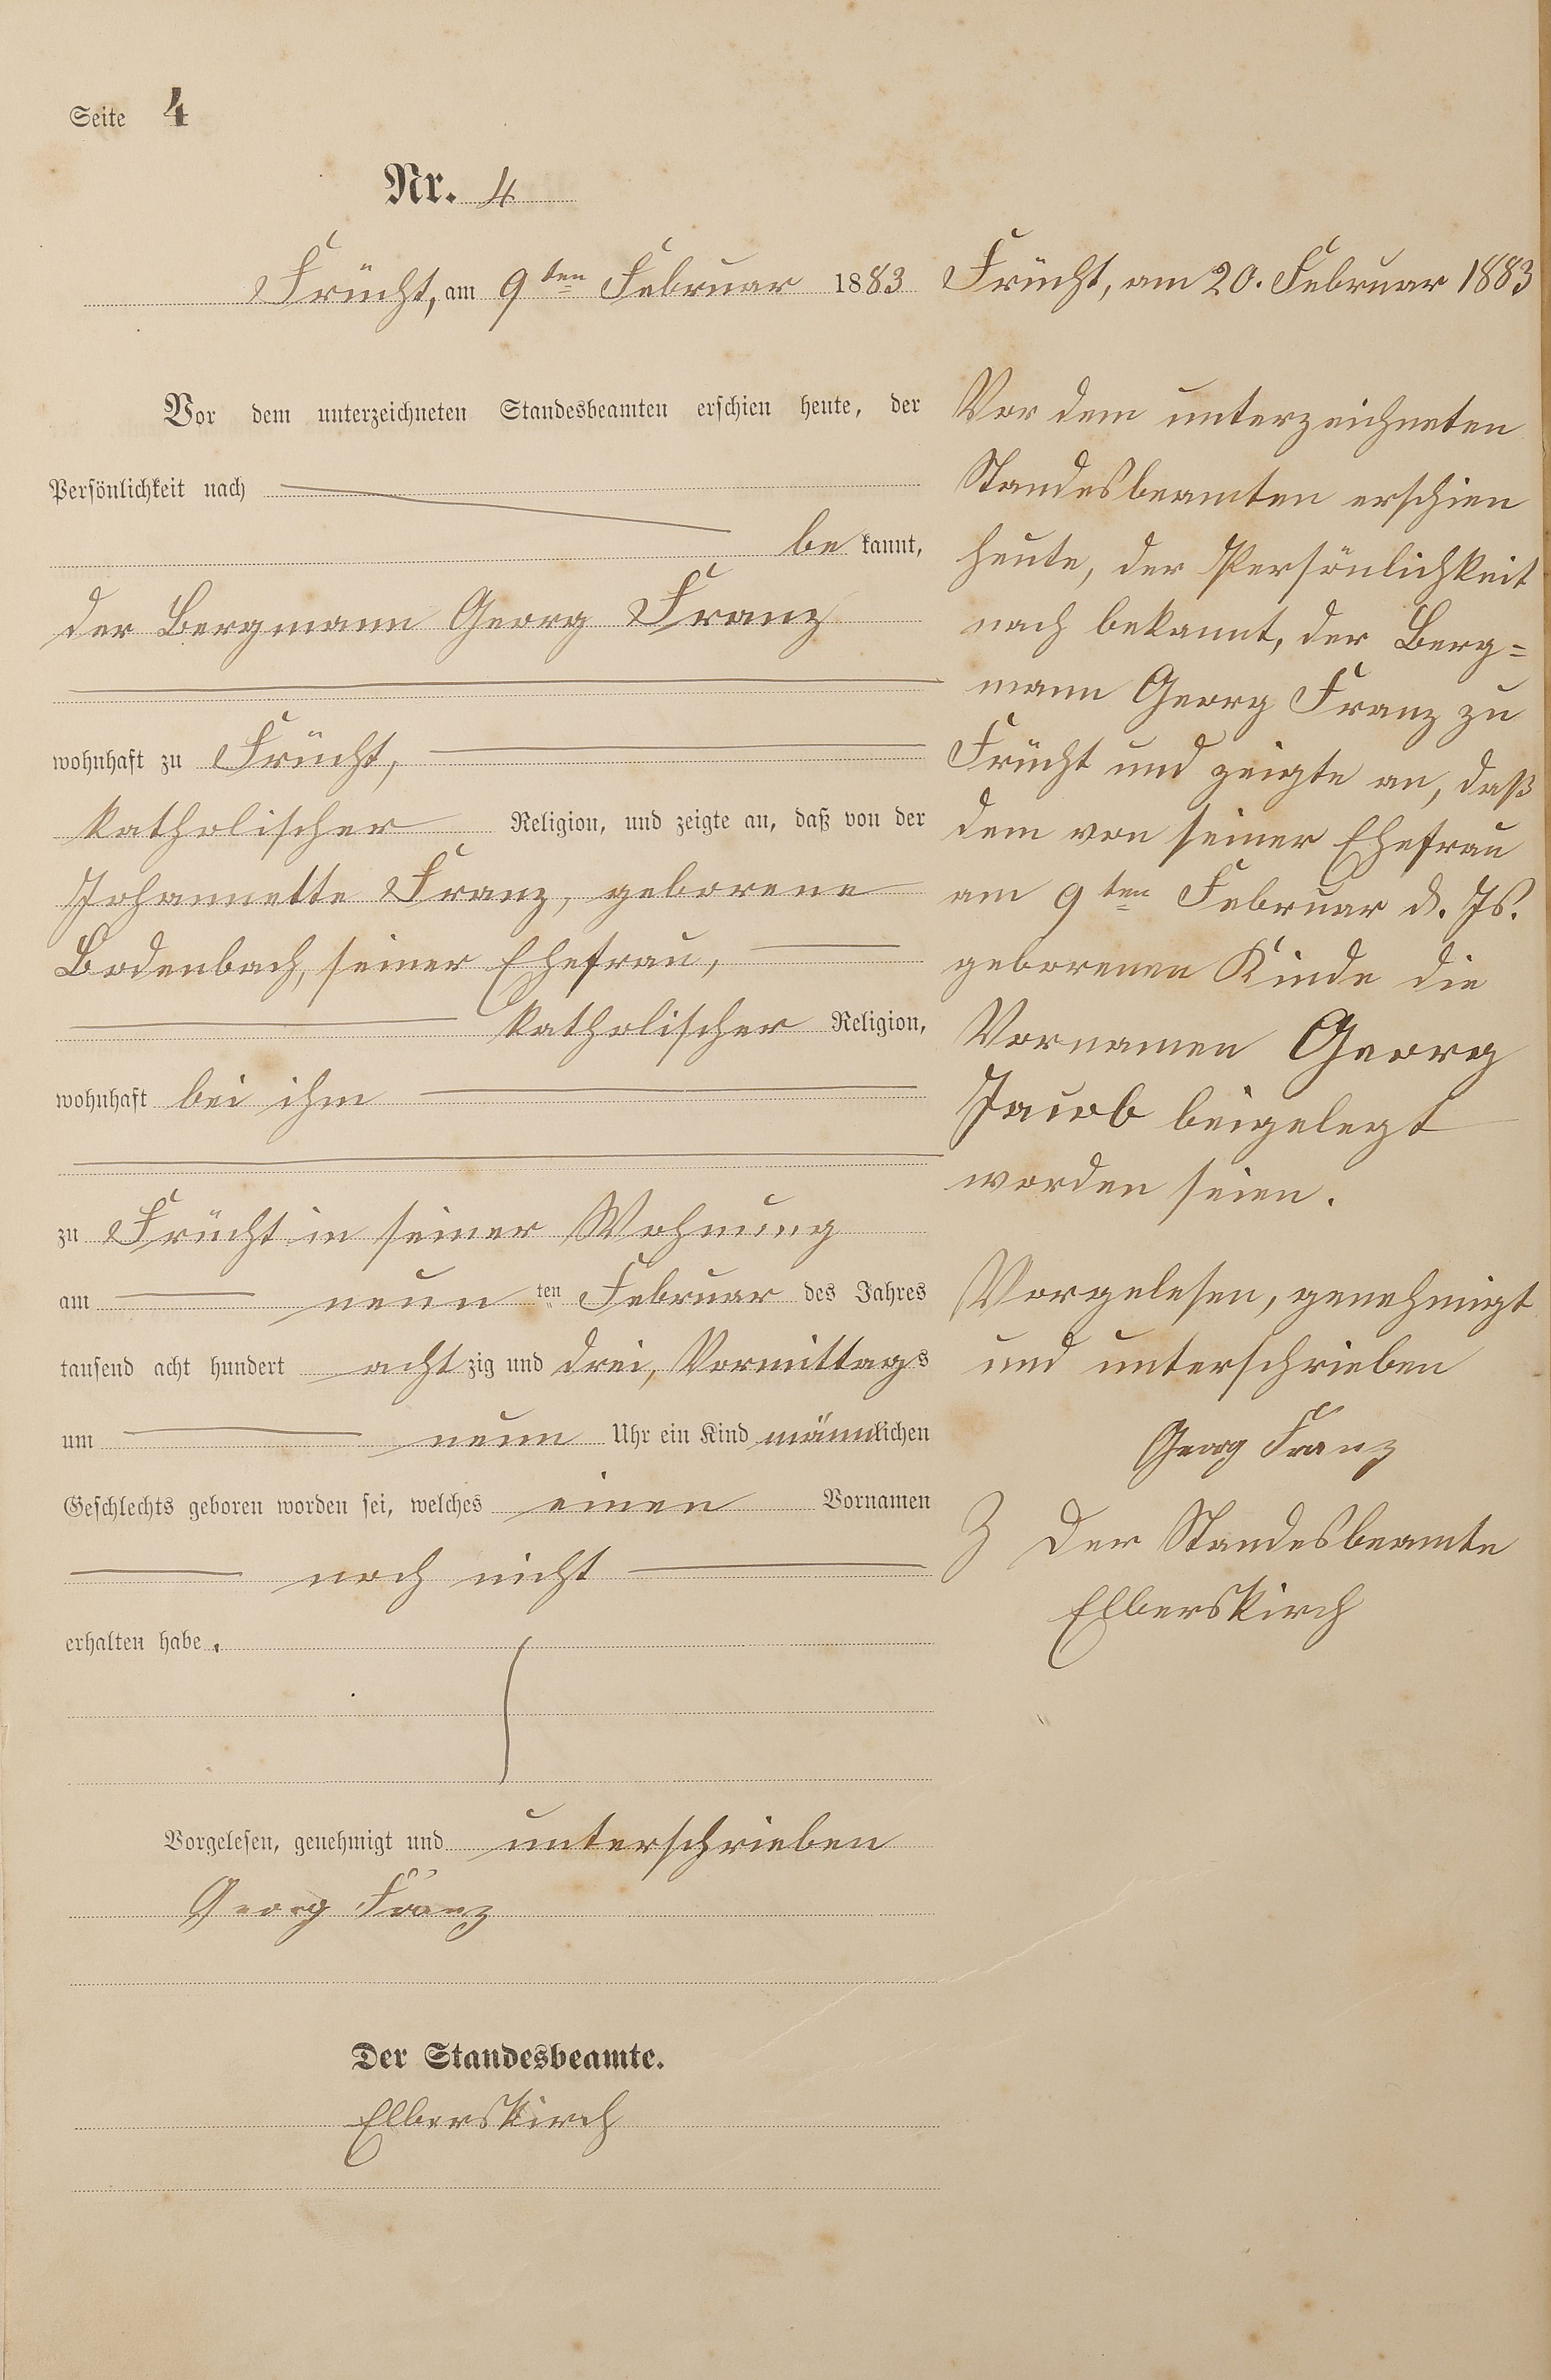 Seite 4
Nr. 4
Frücht, am 9ten Februar 1883
Vor dem unterzeichneten Standesbeamten erschien heute, der
Persönlichkeit nach
be kannt,
der Bergmann Georg Franz
wohnhaft zu Frücht,
katholischer Religion, und zeigte an, daß von der
Johannette Franz, geborene
Bodenbach, seiner Ehefrau,
katholischer Religion,
wohnhaft bei ihm
zu Frücht in seiner Wohnung
am neun ten Februar des Jahres
tausend acht hundert acht zig und drei, Vormittags
um neun Uhr ein Kind männlichen
Geschlechts geboren worden sei, welches einen Vornamen
noch nicht
erhalten habe.
Vorgelesen, genehmigt und unterschrieben
Georg Franz
Der Standesbeamte.
Elberskirch
Frücht, am 20. Februar 1883
Vor dem unterzeichneten
Standesbeamten erschien
heute, der Persönlichkeit
nach bekannt, der Berg=
mann Georg Franz zu
Frücht und zeigte an, daß
dem von seiner Ehefrau
am 9ten Februar d. Js.
geborenen Kinde die
Vornamen Georg
Jacob beigelegt
worden seien.
Vorgelesen, genehmigt
und unterschrieben
Georg Franz
Der Standesbeamte
Elberskirch